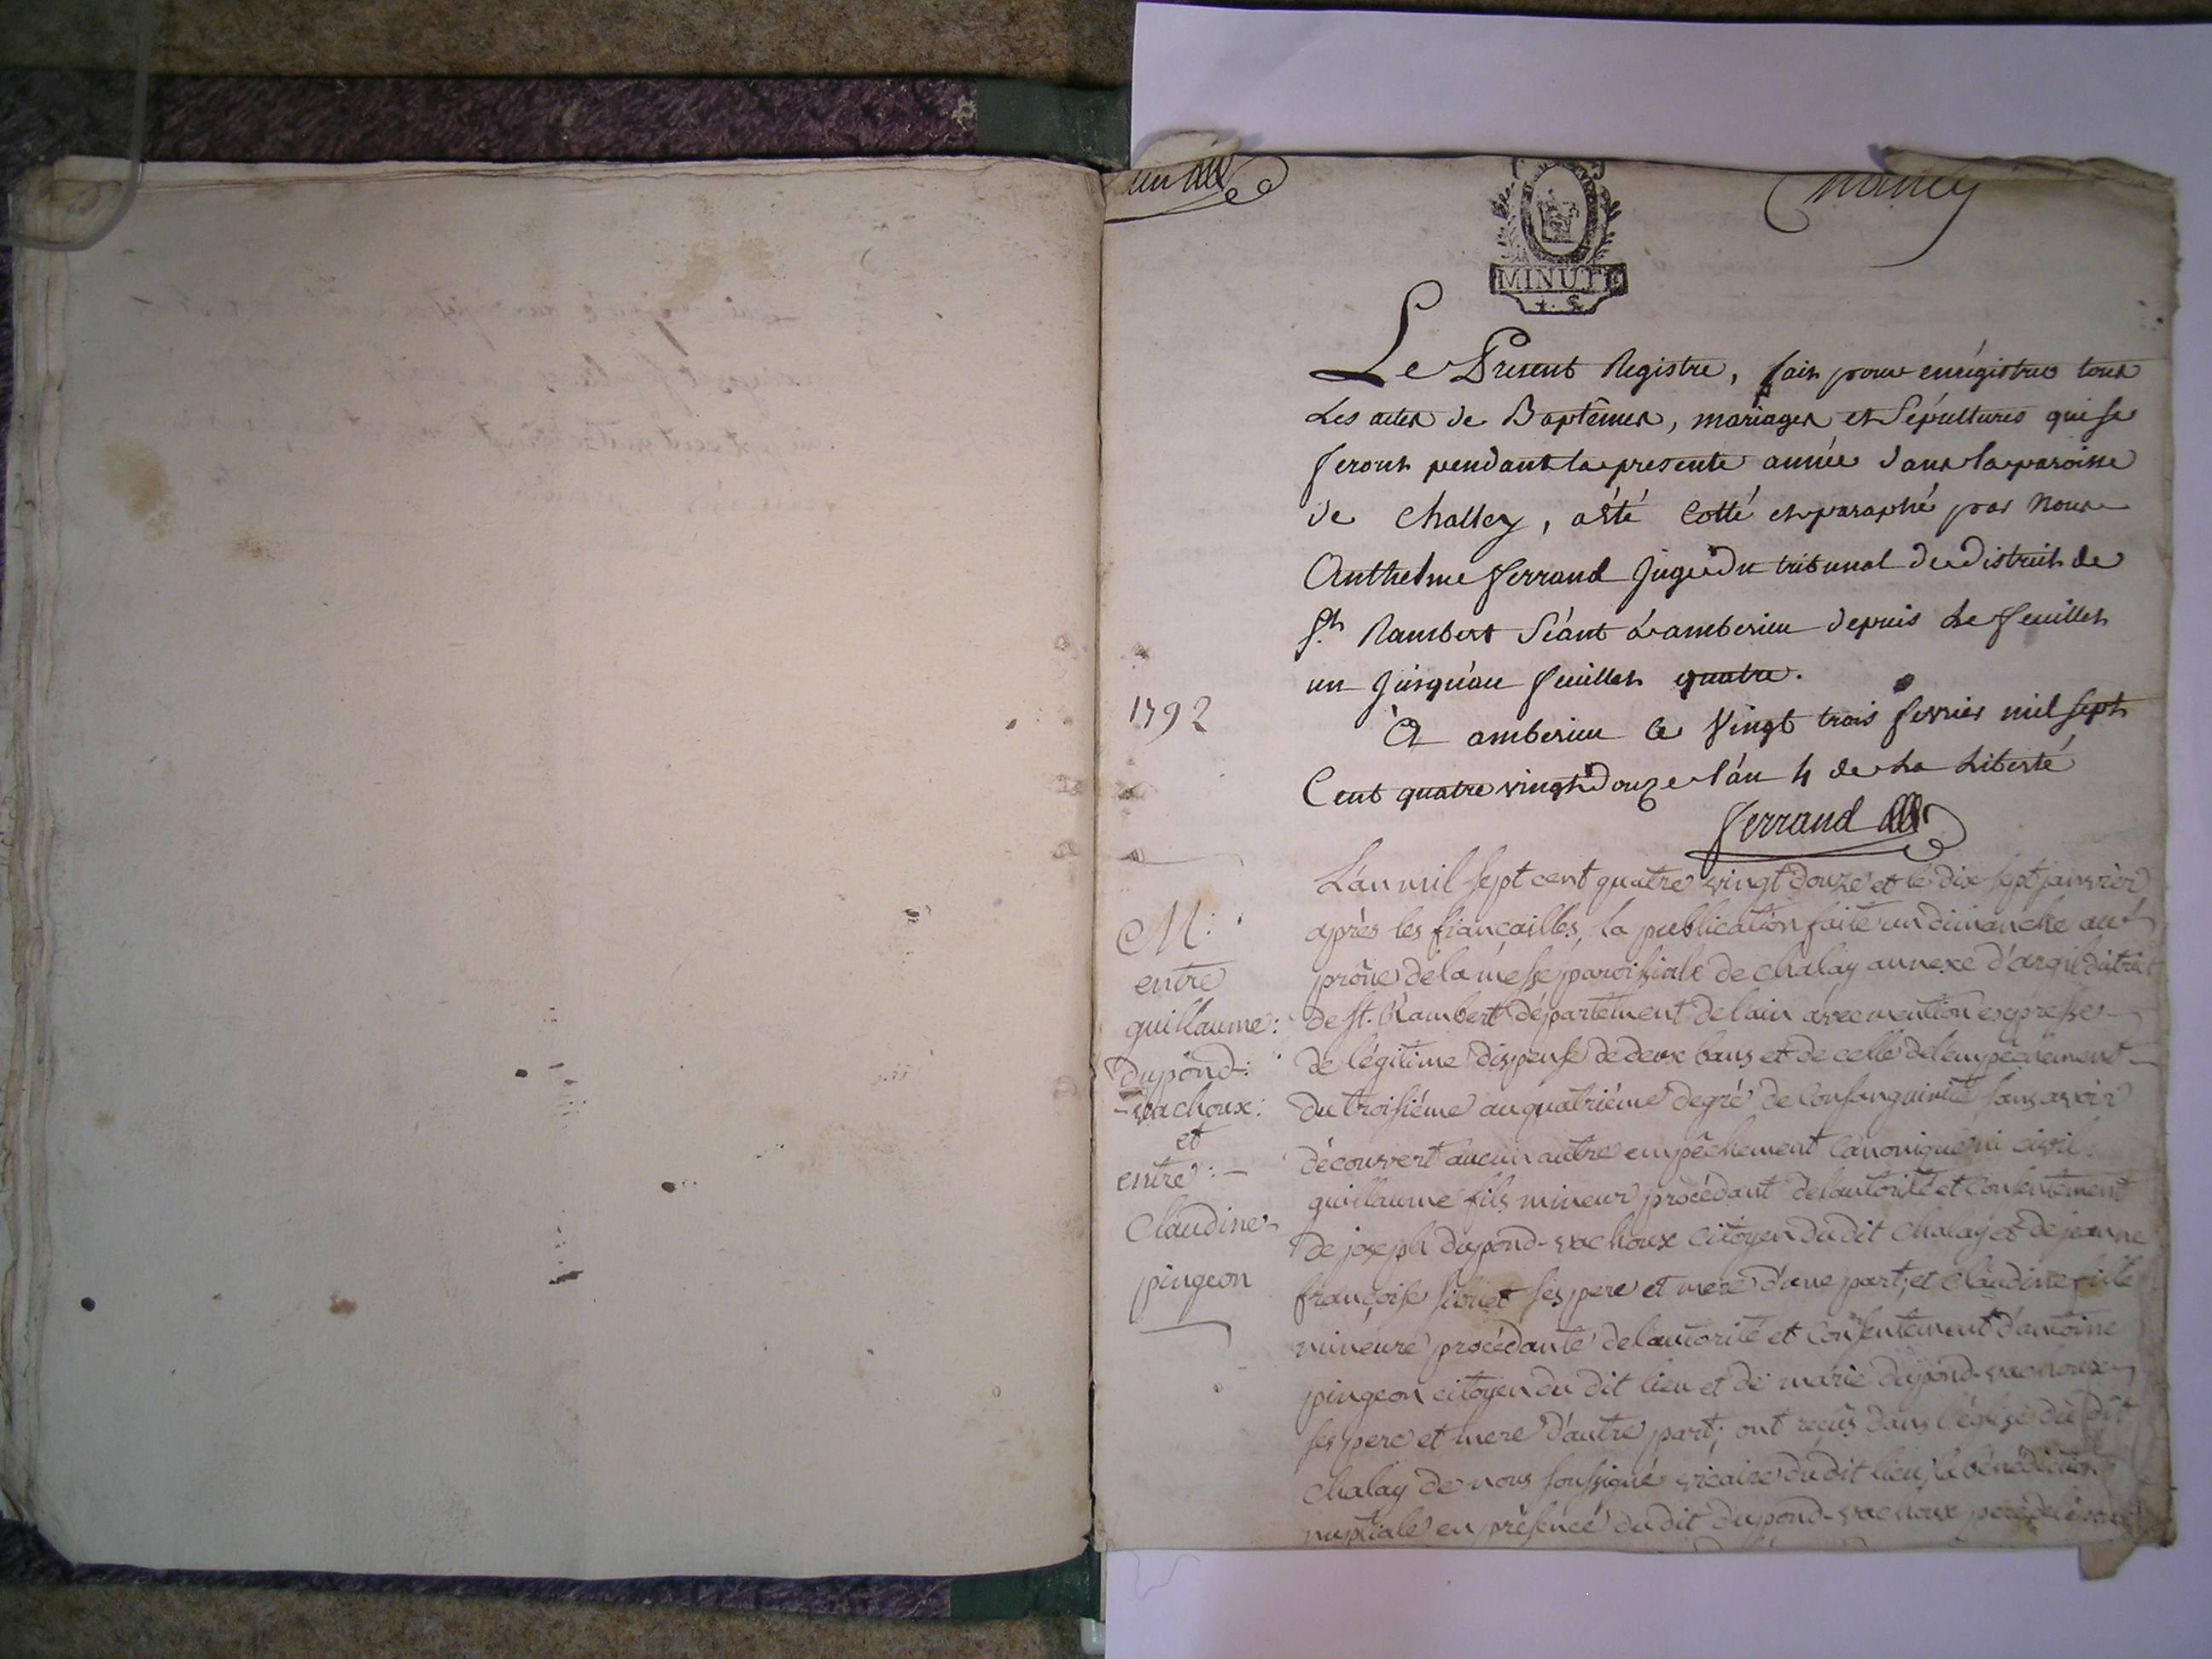 un
Chaley
MINUTE
Le Present Registre, fait pour enrégistrer tous
Les actes de Baptêmes, mariages et Sépultures qui se
feront pendant la presente année dans la paroisse
de Challey, a été Cotté et paraphé par Nous
Anthelme ferrand Juge du tribunal du District de
St. Rambert Séant à amberieu depuis Le feuillet
un Jusqu'au feuillet quatre.
1792
A amberieu ce Vingt trois fevrier mil Sept
Cent quatre vingt Douze l'an 4 de La Liberté
ferrand
M:
entre
guillaume:
dupond:
-vachoux:
et
entre: -
Claudine
pingeon
L'an mil sept cent quatre vingt douze et le dix-sept janvier
après les fiançailles, la publication faite un dimanche au
prône de la messe paroissiale de chalay annexe d'argil district
de st. Rambert département de lain avec mention expresse
de légitime dispense de deux bans et de celle de l'empêchement
du troisiéme au quatriéme degré de Consanguinité sans avoir
découvert aucun autre empêchement Canonique ni civil.
guillaume fils mineur procédant de l'autorité et Consentement
de joseph dupond-vachoux Citoyen du dit chalay et de jeanne
françoise ses pere et mere d'une part; et claudine fille
mineure procédante de l'autorité et Consentement d'antoine
pingeon citoyen du dit lieu et de marie dupond-vachoux
ses pere et mere d'autre part; ont reçûs dans l'église du dit
chalay de nous soussigné vicaire du dit lieu la bénédiction
nuptiale en présence du dit dupond-vachoux pere de